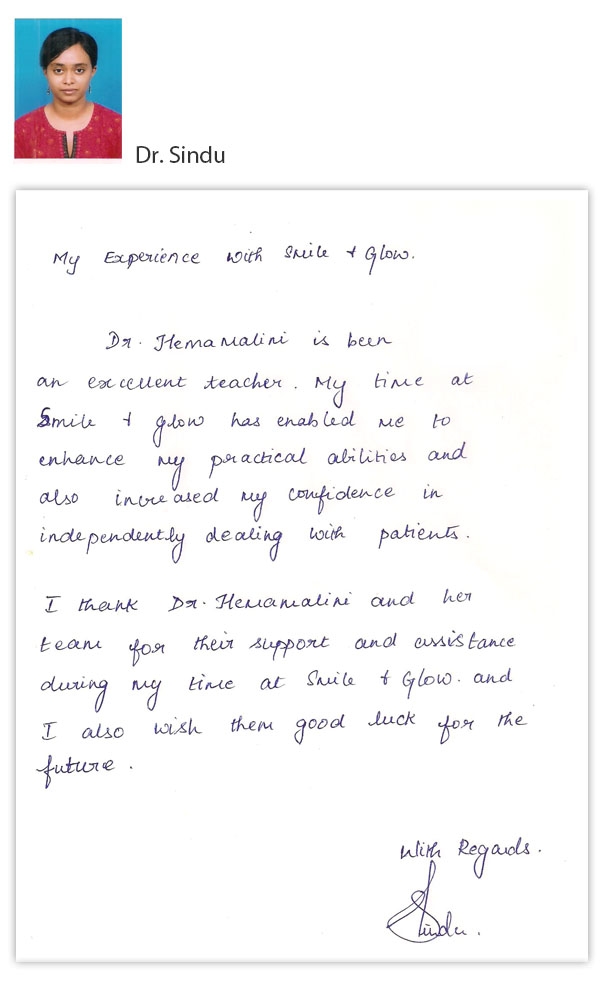 Dr. Sindu
My Experience with Smile & Glow.
Dr. Hemamalini is been
an excellent teacher. My time at
Smile & glow has enabled me to
enhance my practical abilities and
also increased my confidence in
independently dealing with patients.
I thank Dr. Hemamalini and her
team for their support and assistance
during my time at Smile & Glow. and
I also wish them good luck for the
future.
With Regards.
Sindu.